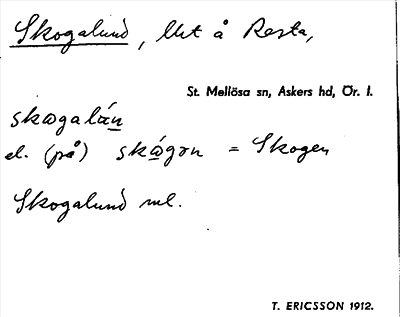 Skogalund, lht å Resta,
St. Mellösa sn, Askers hd, Ör. l.
skωgalán
el. (på) skωgən = Skogen
Skogalund ml.
T. ERICSSON 1912.